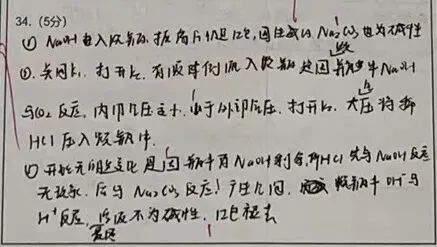 34. (5分)
① NaOH 进入烧瓶后, 振荡后仍是红色, 因生成的 Na₂CO₃ 也为碱性
② 关闭K₁, 打开K₂, 有液体倒流入烧瓶是因为瓶中NaOH
与CO₂反应, 内部气压变小, 小于外部气压, 打开K₂, 大气压将稀
HCl 压入烧瓶中.
开始无明显变化是因为瓶中有NaOH剩余, 稀HCl先与NaOH反应
无现象. 后与Na₂CO₃反应, 产生气泡, 烧瓶中OH⁻与
H⁺反应, 溶液不为碱性, 红色褪去